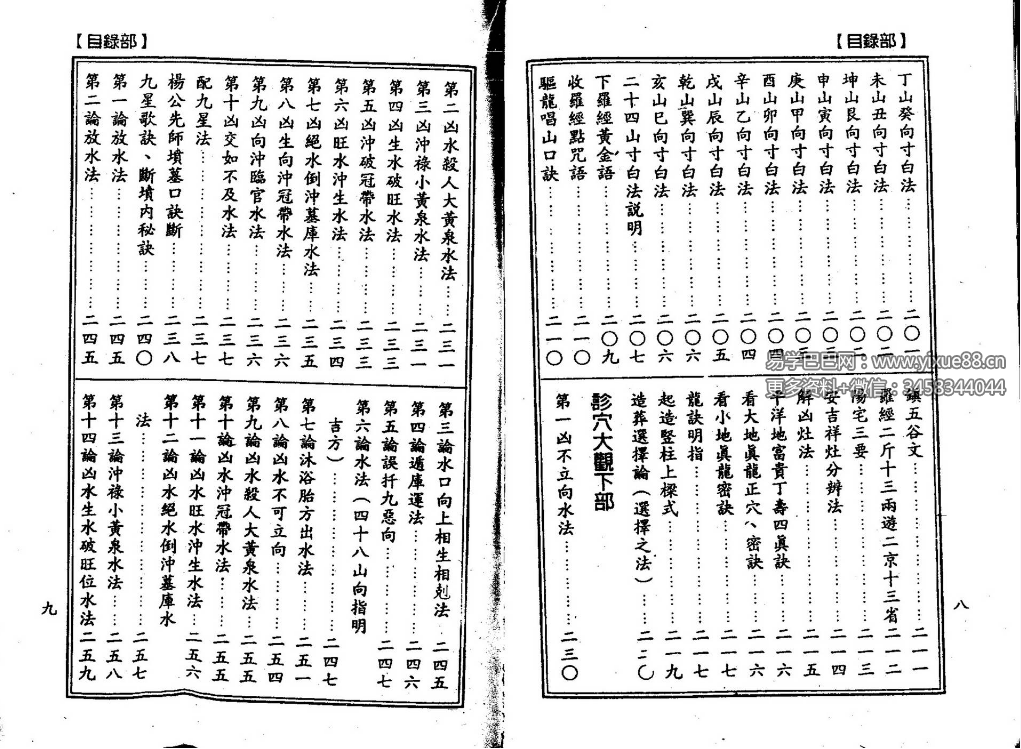 【目錄部】
丁山癸向寸白法……二〇一
未山丑向寸白法……二〇二
坤山艮向寸白法……二〇
申山寅向寸白法……二〇
庚山甲向寸白法……二〇
酉山卯向寸白法……二〇四
辛山乙向寸白法……二〇四
戌山辰向寸白法……二〇五
乾山巽向寸白法……二〇六
亥山巳向寸白法……二〇六
二十四山寸白法説明……二〇七
下羅經黃金語……二〇九
收羅經點咒語……二一〇
驅龍唱山口訣……二一〇
鎮五谷文……二一一
羅經二斤十三兩遊二京十三省……二一二
陽宅三要……二一三
安吉祥灶分辨法……二一四
解凶灶法……二一五
平洋地富貴丁壽四眞訣……二一六
看大地眞龍正穴、密訣……二一六
看小地眞龍密訣……二一七
龍訣明指……二一七
起造豎柱上樑式……二一九
造葬選擇論(選擇之法)……二二〇
診穴大觀下部
第一凶不立向水法……二三〇
八
【目錄部】
第二凶水殺人大黃泉水法……二三一
第三凶沖祿小黃泉水法……二三一
第四凶生水破旺水法……二三三
第五凶沖破冠帶水法……二三三
第六凶旺水沖生水法……二三四
第七凶絕水倒沖墓庫水法……二三五
第八凶生向沖冠帶水法……二三六
第九凶向沖臨官水法……二三六
第十凶交如不及水法……二三七
配九星法……二三七
楊公先師墳墓口訣斷……二三八
九星歌訣、斷墳內秘訣……二四〇
第一論放水法……二四五
第二論放水法……二四五
第三論水口向上相生相剋法……二四五
第四論遁庫運法……二四六
第五論誤扦九惡向……二四七
第六論水法(四十八山向指明
吉方)……二四七
第七論沐浴胎方出水法……二五一
第八論凶水不可立向……二五四
第九論凶水殺人大黃泉水法……二五五
第十論凶水沖冠帶水法……二五五
第十一論凶水旺水沖生水法……二五六
第十二論凶水絕水倒沖墓庫水
法……二五七
第十三論沖祿小黃泉水法……二五八
第十四論凶水生水破旺位水法二五九
九
易学巴巴网：www.yixue88.cn
更多资料+微信：3453344044